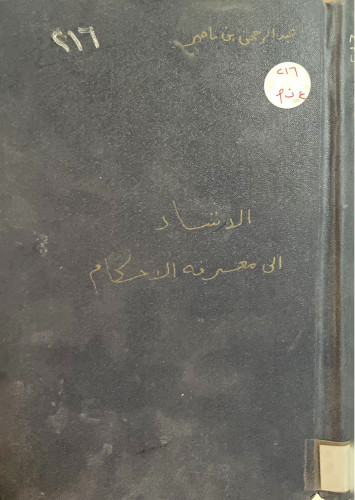 عبد الرحمن بن ناصر
٢١٦
٢١٦
ع ن م
الارشاد
الى معرفة الاحكام